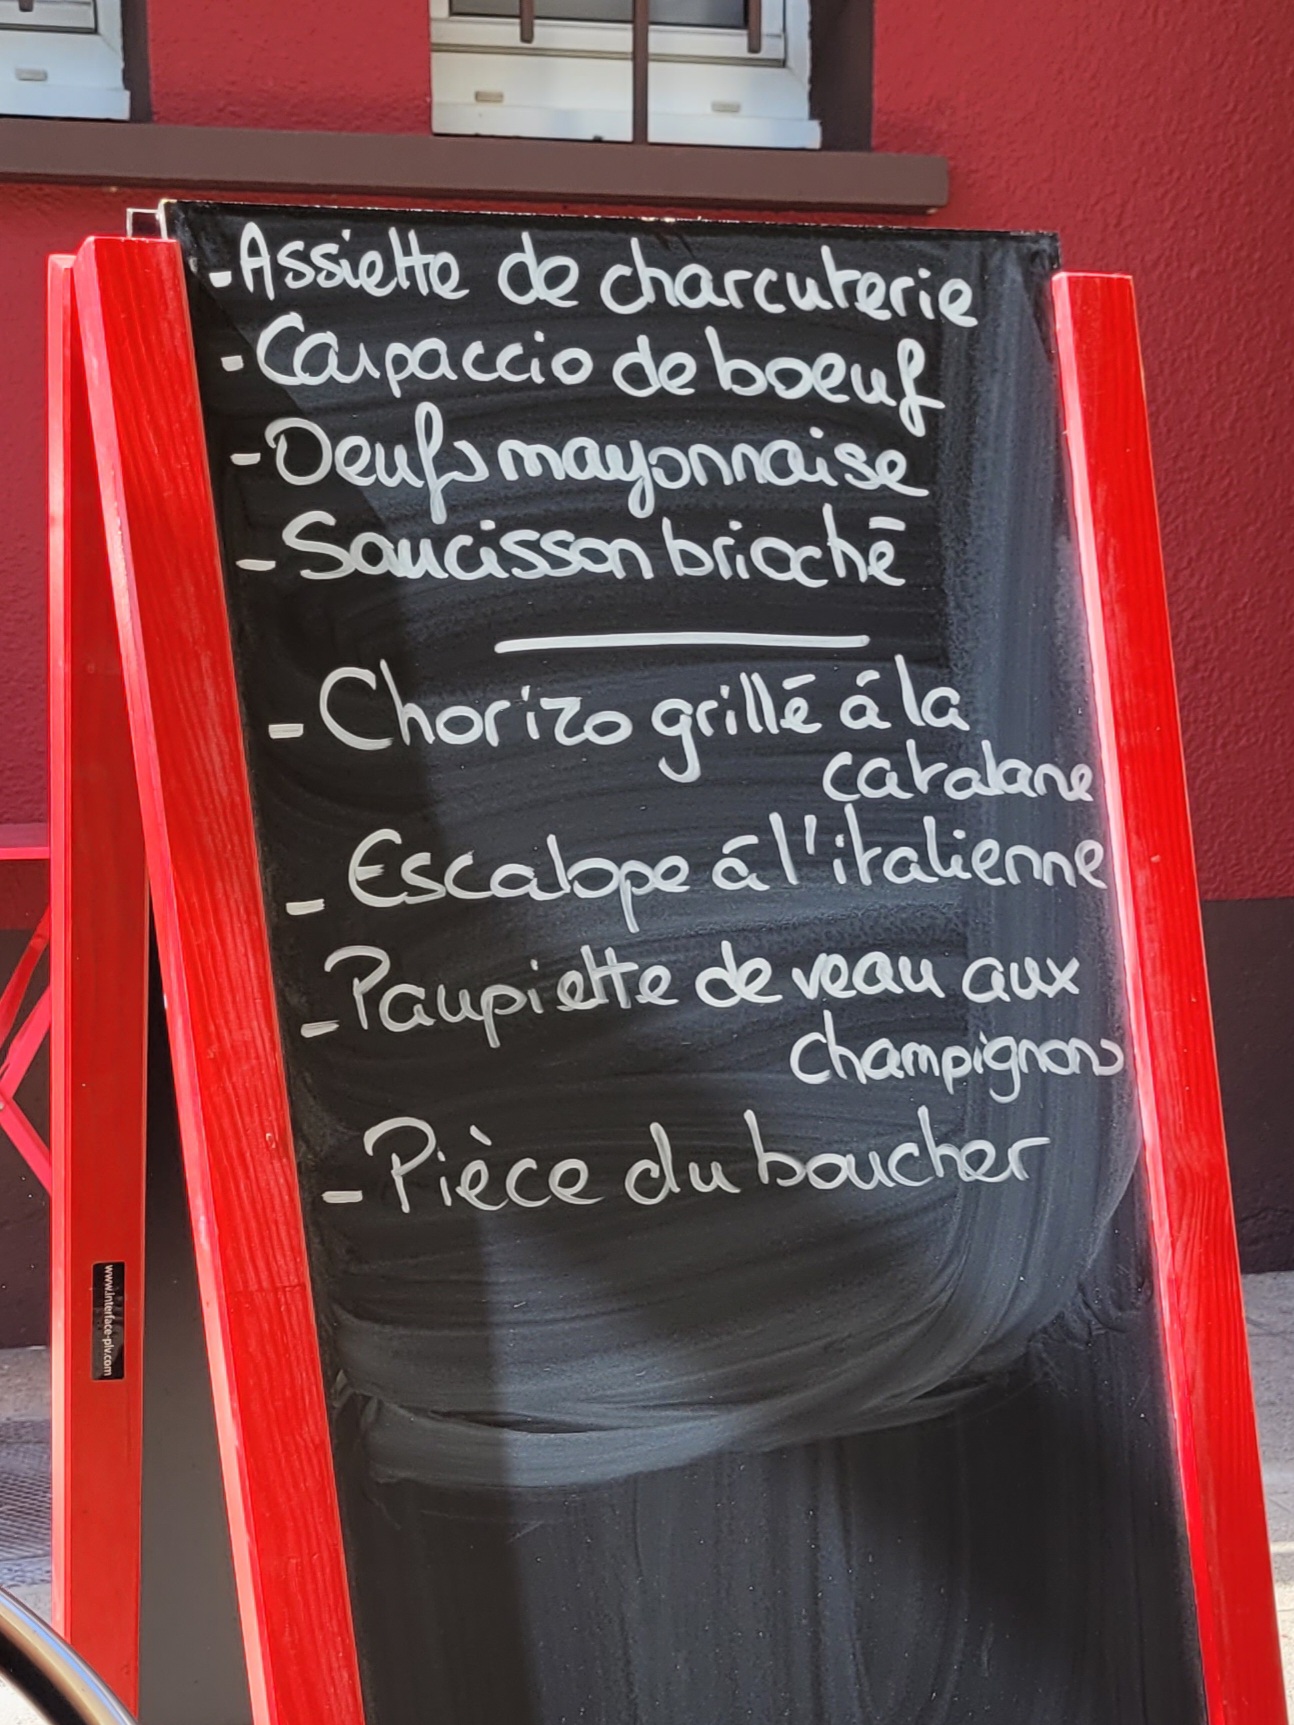 - Assiette de charcuterie
- Carpaccio de boeuf
- Oeufs mayonnaise
- Saucisson brioché
- Chorizo grillé á la
catalane
- Escalope á l'italienne
- Paupiette de veau aux
champignons
- Pièce du boucher
www.interface-plv.com